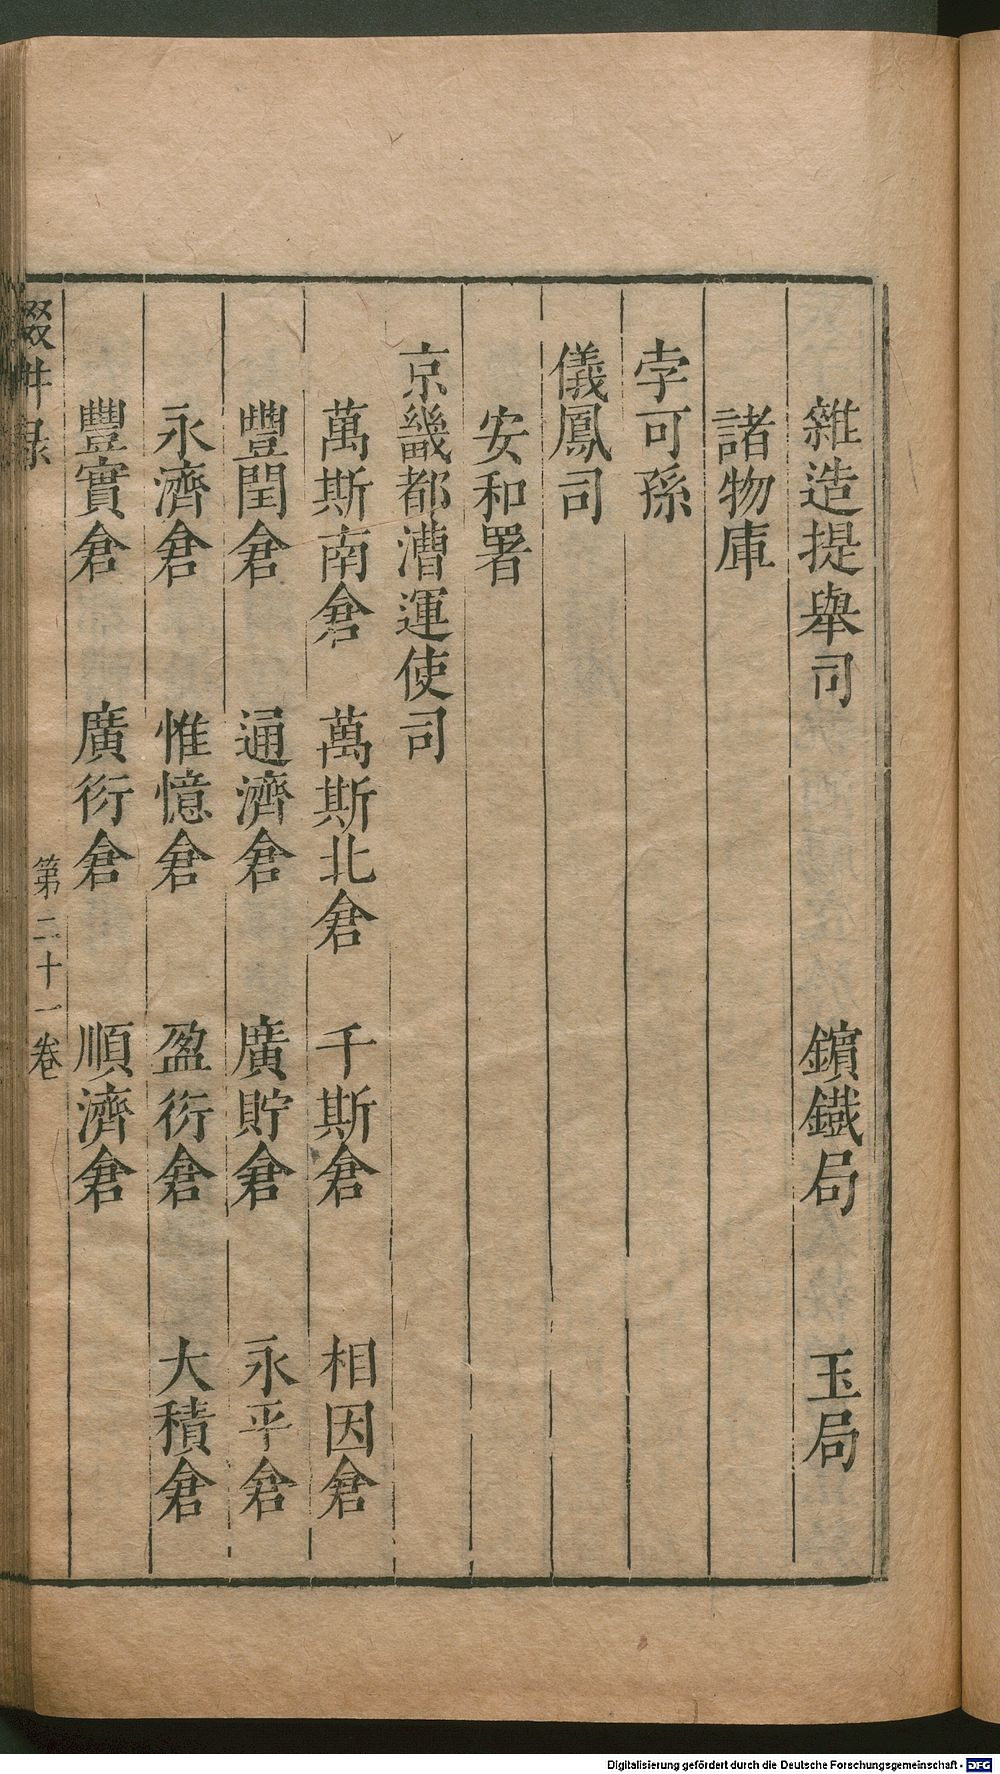 雜造提舉司　鑌鐵局　玉局
諸物庫
孛可孫
儀鳳司
安和署
京畿都漕運使司
萬斯南倉　萬斯北倉　千斯倉　相因倉
豐閏倉　通濟倉　廣貯倉　永平倉
永濟倉　惟憶倉　盈衍倉　大積倉
豐實倉　廣衍倉　順濟倉
輟畊录　第二十一卷
Digitalisierung gefördert durch die Deutsche Forschungsgemeinschaft - DFG